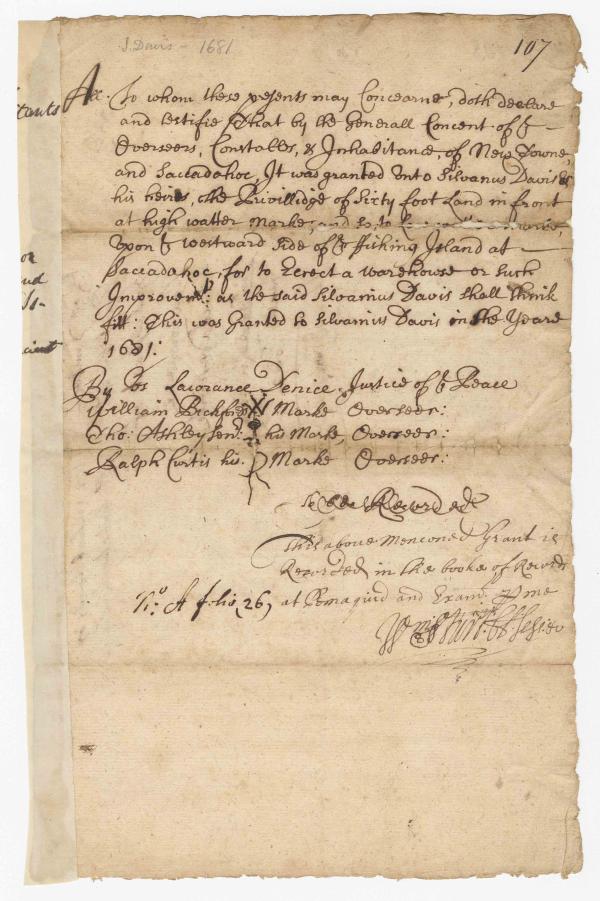 J. Davis - 1681
107
itants
A To whom these presents may Concerne, doth declare
and testifie That by the Generall Concent of ye
Overseers, Constables, & Inhabitance, of New Towne,
and Saccadahoc, It was granted unto Silvanus Davis &
his heires, the Privillidge of Sixty foot Land in front
at high watter marke, and so to
upon ye westward side of ye ffishing Island at
Saccadahoc, for to Erect a warehouse or such
Improvemt: as the said Silvanius Davis shall think
fitt: This was Granted to Silvanius Davis in the Yeare
1681:
By us Lawrance Denice, Justice of ye Peace
William Bickford X Marke Overseer:
Tho: Ashley Senr: his Marke, Overseer:
Ralph Curtis his Marke Overseer:
Recorded
This above Mencioned Grant is
Recorded in the booke of Records
No: A folio (26) at Pemaquid and Exam: p me